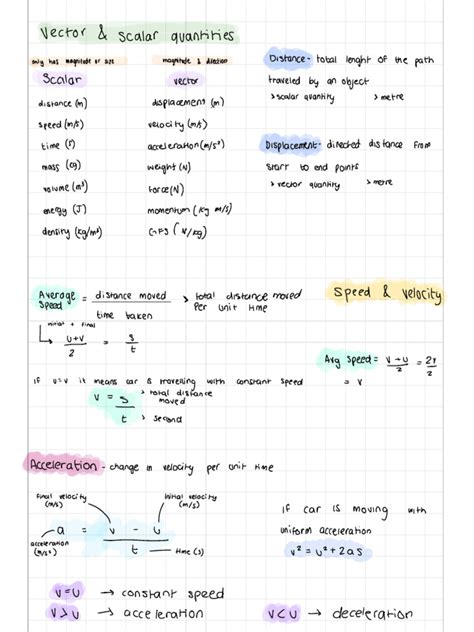 Vector & scalar quantities
only has magnitude or size
magnitude & direction
Scalar
vector
distance (m)
displacement (m)
speed (m/s)
velocity (m/s)
time (s)
acceleration (m/s²)
mass (kg)
weight (N)
volume (m³)
force (N)
energy (J)
momentum (kg m/s)
density (kg/m³)
GFS (N/kg)
Distance - total lenght of the path
travelled by an object
> scalar quantity > metre
Displacement - directed distance from
start to end points
> vector quantity > metre
Speed & velocity
Average Speed = distance moved / time taken > total distance moved per unit time
initial + final
u+v / 2 = s / t
Avg speed = v+u / 2 = 2v / 2
= v
if u=v it means car is travelling with constant speed
v = s / t
> total distance moved
> second
Acceleration - change in velocity per unit time
final velocity (m/s)
initial velocity (m/s)
a = v - u / t
acceleration (m/s²)
time (s)
if car is moving with
uniform acceleration
v² = u² + 2as
v=u → constant speed
v>u → acceleration
v<u → deceleration